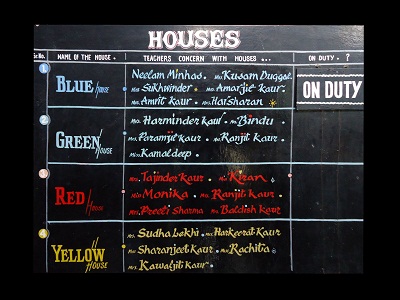 HOUSES
Sr.No. NAME OF THE HOUSE. TEACHERS CONCERN WITH HOUSES ... ON DUTY - ?
1 BLUE HOUSE
Neelam Minhas. Mrs. Kusam Duggal.
Mrs Sukhwinder Mrs. Amarjit Kaur.
Mrs. Amrit Kaur. Harsharan
ON DUTY
2 GREEN HOUSE
Mrs. Harminder Kaur Bindu
Mrs. Paramjit Kaur Ranjit Kaur.
Miss Kamaldeep
3 RED HOUSE
Mrs. Tajinder Kaur. Kiran
Miss Monika Ranjit Kaur
Mrs. Preeti Sharma Baldish Kaur
4 YELLOW HOUSE
Mrs. Sudha Lekhi Harkeerat Kaur
Mrs Sharanjeet Kaur Rachita
Mrs. Kawaljit Kaur.